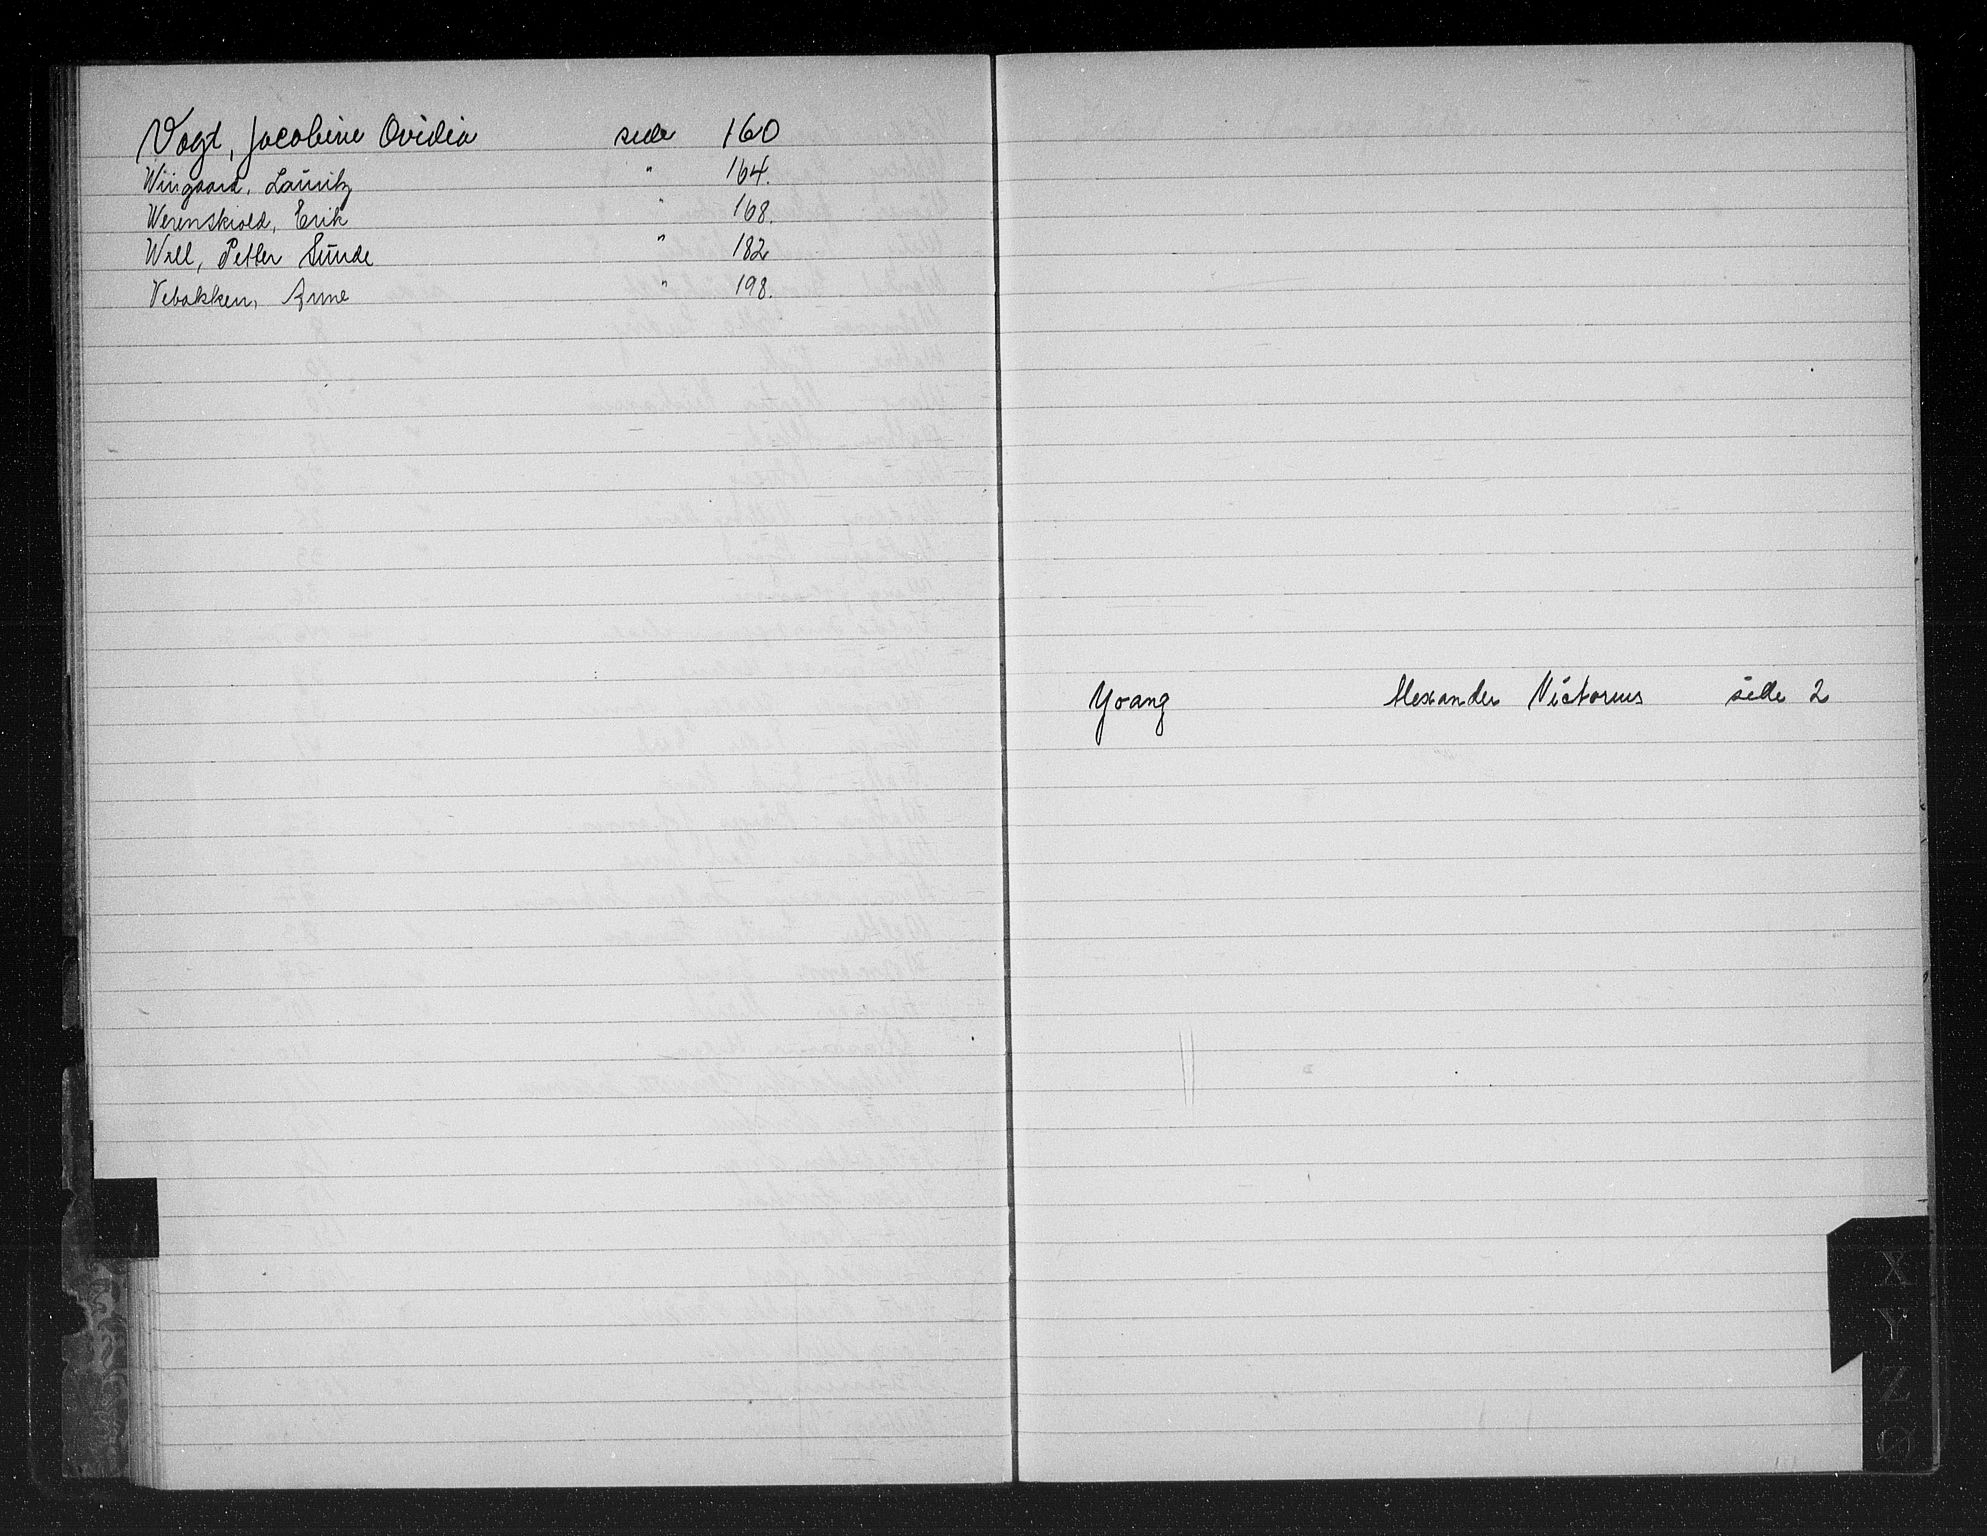 Vogt, Jacobine Ovidia side 160
Wiirgaard, Lauritz " 164.
Werenskiold, Erik " 168.
Wall, Petter Sunde " 182
Vebakken, Anne " 198.
Yoang Alexander Victorius side 2
X
Y
Z
Ø